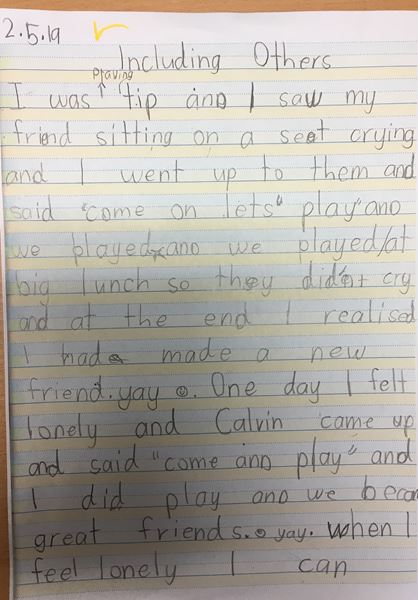 2.5.19
Including Others
playing
I was ↑ tip and I saw my
friend sitting on a seat crying
and I went up to them and
said "come on lets" play" and
we played and we played at
big lunch so they didn't cry
and at the end I realised
I had made a new
friend. yay ☺. One day I felt
lonely and Calvin came up
and said "come and play" and
I did play and we becam
great friends. ☺ yay. when I
feel lonely I can